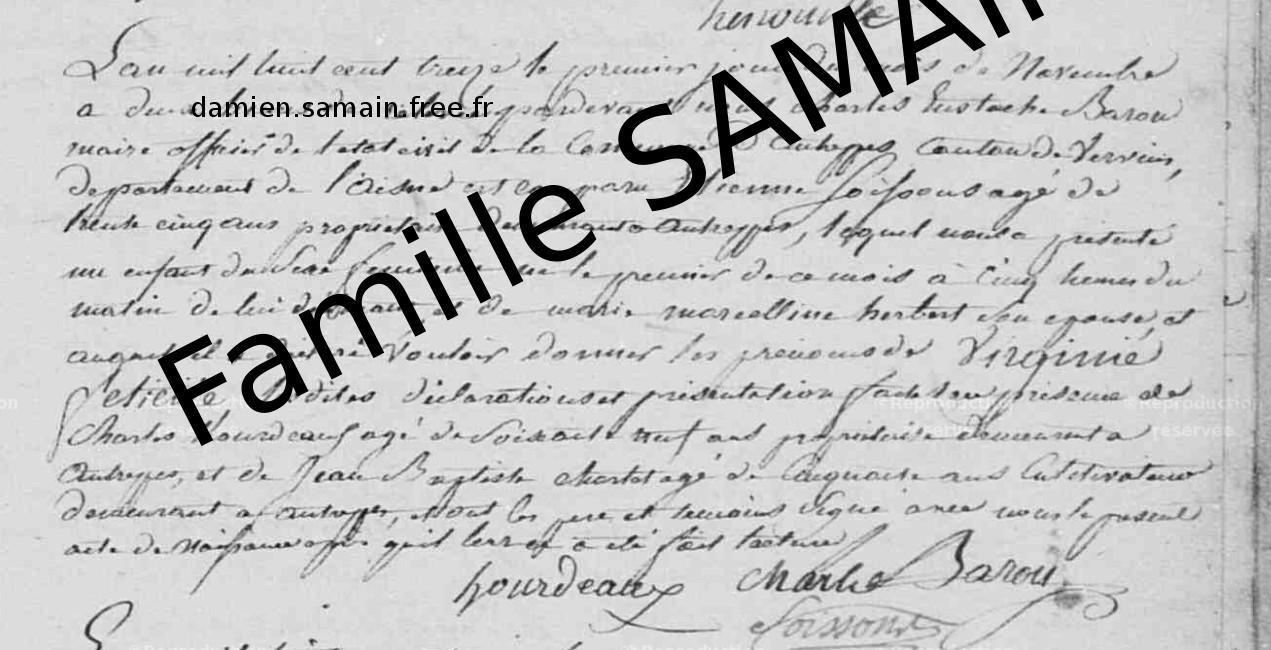 L'an mil huit cent treize le premier jour du mois de Novembre
a du damien.samain.free.fr pardevant nous charles Eustache Barou
maire officier de l'etat civil de la Commune d'autreppes Canton de Vervins,
departement de l'Aisne est comparu Etienne Soissons agé de
trente cinq ans proprietaire demeurant a autreppes, lequel nous a présenté
un enfant du Sexe feminin né le premier de ce mois à Cinq heures du
matin de lui declarant, et de marie marcelline herbert son epouse, et
auquel il a déclaré Vouloir donner les prenoms de Virginie
lesdites déclaration et présentation faites en présence de
Charles hourdeaux agé de Soixante neuf ans propriétaire demeurant a
autreppes, et de Jean Baptiste agé de Cinquante ans Cultivateur
demeurant a autreppes, et ont les pere et temoins Signé avec nous le present
acte de Naissance apres qu'il leur en a été fait lecture
hourdeaux Charles Barou
Soissons
Famille SAMAIN
© Reproduction
réservée